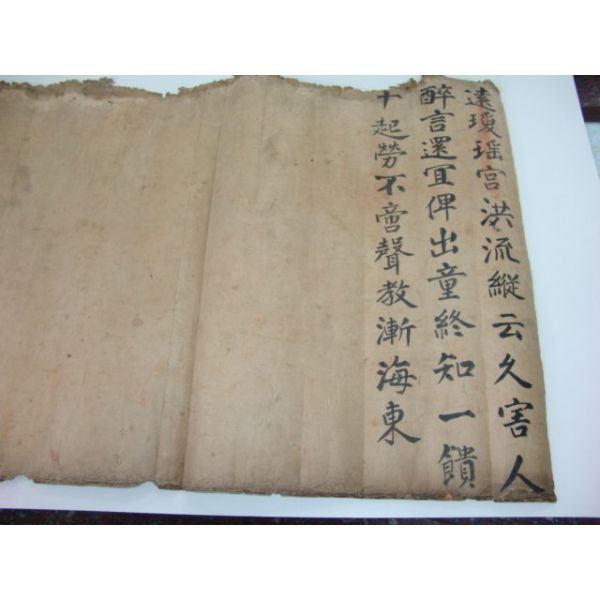 遠瓊瑶宫洪流縱云久害人
醉言還宜俾出童終知一饋
十起勞不啻聲教漸海東